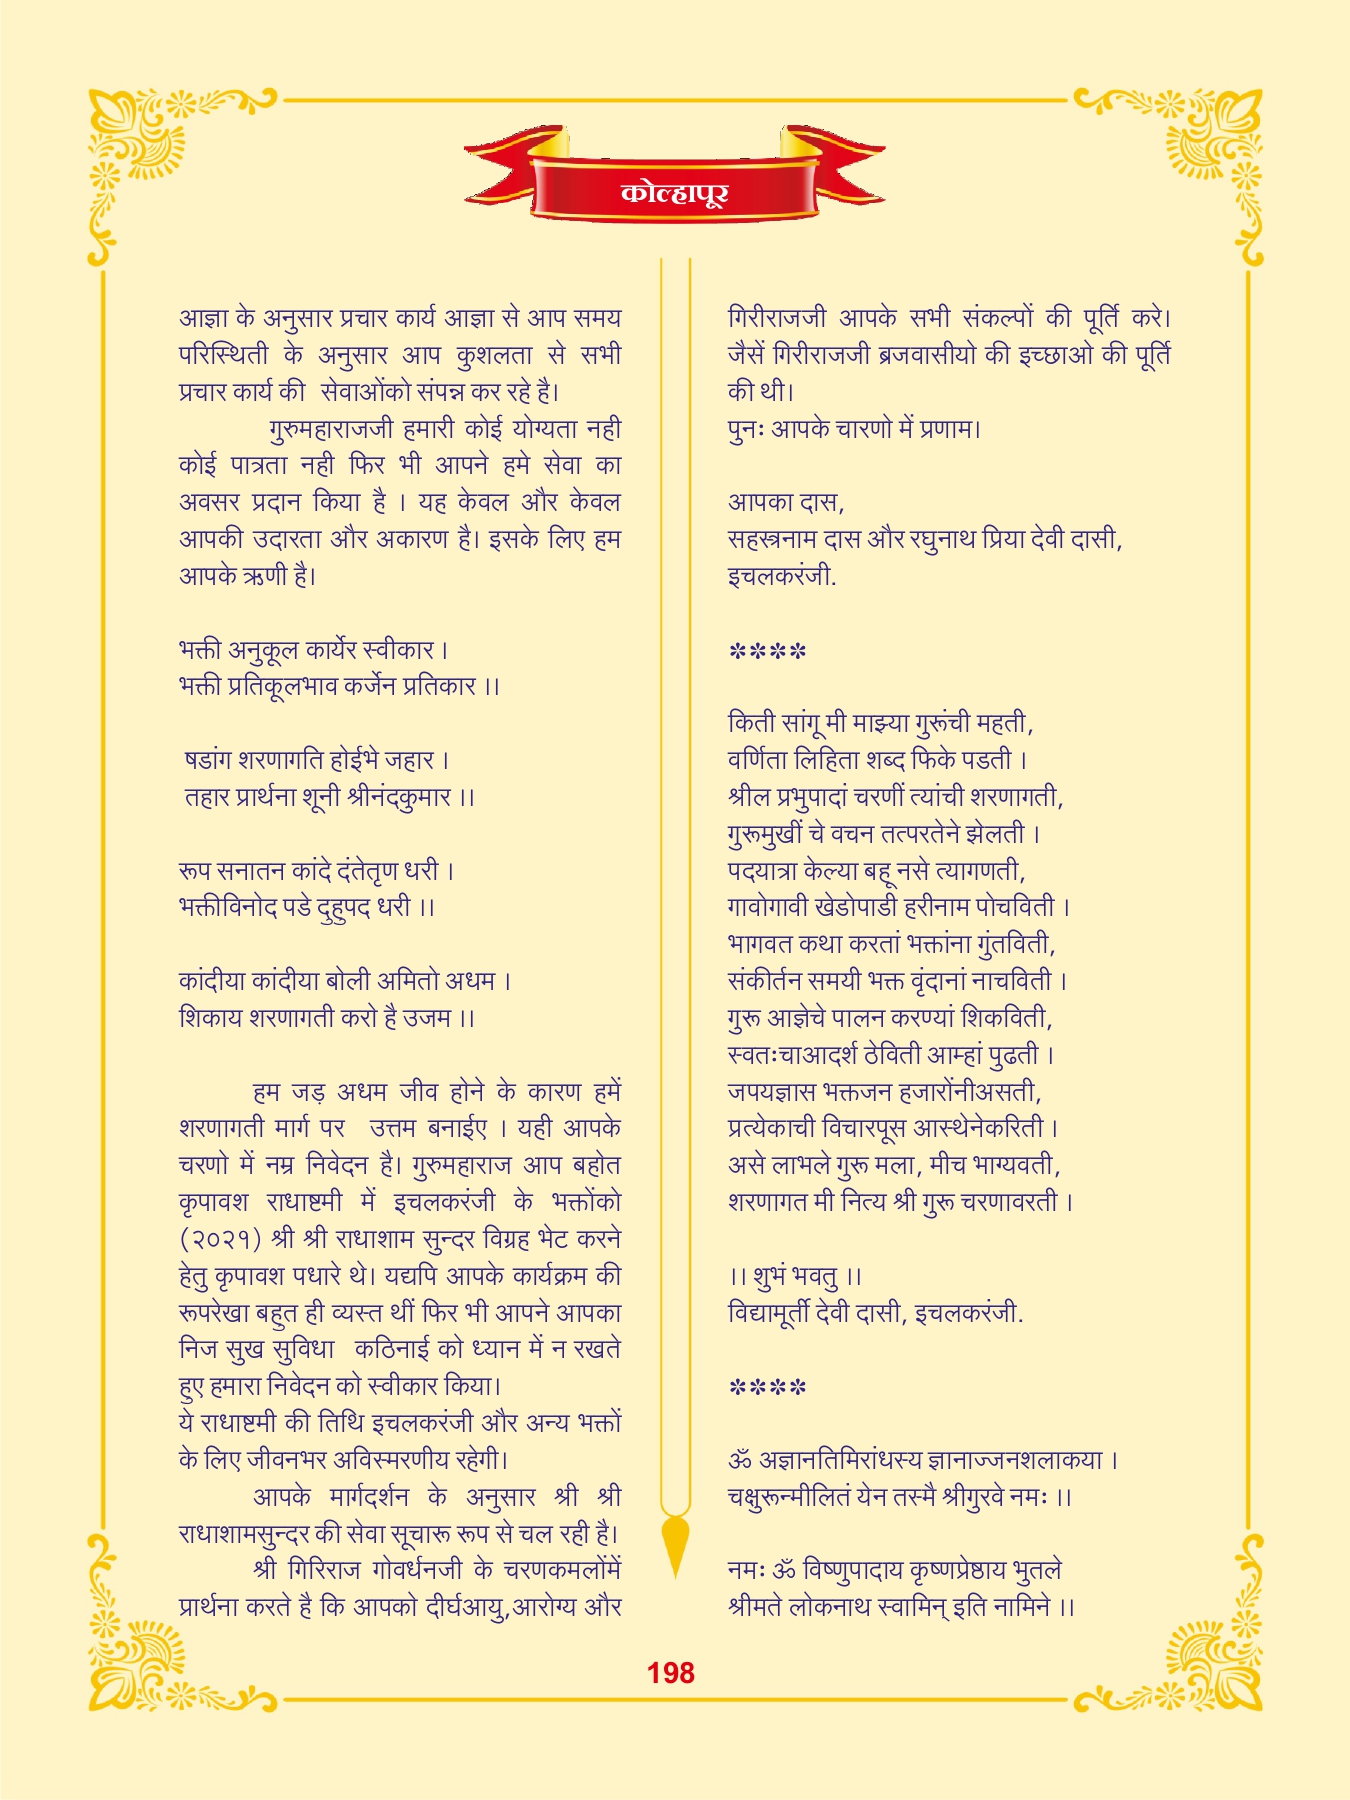 कोल्हापूर
आज्ञा के अनुसार प्रचार कार्य आज्ञा से आप समय
परिस्थिती के अनुसार आप कुशलता से सभी
प्रचार कार्य की सेवाओंको संपन्न कर रहे है।
गुरुमहाराजजी हमारी कोई योग्यता नही
कोई पात्रता नही फिर भी आपने हमे सेवा का
अवसर प्रदान किया है । यह केवल और केवल
आपकी उदारता और अकारण है। इसके लिए हम
आपके ऋणी है।
भक्ती अनुकूल कार्येर स्वीकार ।
भक्ती प्रतिकूलभाव कर्जेन प्रतिकार ।।
षडांग शरणागति होईभे जहार ।
तहार प्रार्थना शूनी श्रीनंदकुमार ।।
रूप सनातन कांदे दंतेतृण धरी ।
भक्तीविनोद पडे दुहुपद धरी ।।
कांदीया कांदीया बोली अमितो अधम ।
शिकाय शरणागती करो है उजम ।।
हम जड़ अधम जीव होने के कारण हमें
शरणागती मार्ग पर उत्तम बनाईए । यही आपके
चरणो में नम्र निवेदन है। गुरुमहाराज आप बहोत
कृपावश राधाष्टमी में इचलकरंजी के भक्तोंको
(२०२१) श्री श्री राधाशाम सुन्दर विग्रह भेट करने
हेतु कृपावश पधारे थे। यद्यपि आपके कार्यक्रम की
रूपरेखा बहुत ही व्यस्त थीं फिर भी आपने आपका
निज सुख सुविधा कठिनाई को ध्यान में न रखते
हुए हमारा निवेदन को स्वीकार किया।
ये राधाष्टमी की तिथि इचलकरंजी और अन्य भक्तों
के लिए जीवनभर अविस्मरणीय रहेगी।
आपके मार्गदर्शन के अनुसार श्री श्री
राधाशामसुन्दर की सेवा सूचारू रूप से चल रही है।
श्री गिरिराज गोवर्धनजी के चरणकमलोंमें
प्रार्थना करते है कि आपको दीर्घआयु,आरोग्य और
गिरीराजजी आपके सभी संकल्पों की पूर्ति करे।
जैसें गिरीराजजी ब्रजवासीयो की इच्छाओ की पूर्ति
की थी।
पुनः आपके चारणो में प्रणाम।
आपका दास,
सहस्त्रनाम दास और रघुनाथ प्रिया देवी दासी,
इचलकरंजी.
****
किती सांगू मी माझ्या गुरूंची महती,
वर्णिता लिहिता शब्द फिके पडती ।
श्रील प्रभुपादां चरणीं त्यांची शरणागती,
गुरूमुखीं चे वचन तत्परतेने झेलती ।
पदयात्रा केल्या बहू नसे त्यागणती,
गावोगावी खेडोपाडी हरीनाम पोचविती ।
भागवत कथा करतां भक्तांना गुंतविती,
संकीर्तन समयी भक्त वृंदानां नाचविती ।
गुरू आज्ञेचे पालन करण्यां शिकविती,
स्वतःचाआदर्श ठेविती आम्हां पुढती ।
जपयज्ञास भक्तजन हजारोंनीअसती,
प्रत्येकाची विचारपूस आस्थेनेकरिती ।
असे लाभले गुरू मला, मीच भाग्यवती,
शरणागत मी नित्य श्री गुरू चरणावरती ।
।। शुभं भवतु ।।
विद्यामूर्ती देवी दासी, इचलकरंजी.
****
ॐ अज्ञानतिमिरांधस्य ज्ञानाज्जनशलाकया ।
चक्षुरून्मीलितं येन तस्मै श्रीगुरवे नमः ।।
नमः ॐ विष्णुपादाय कृष्णप्रेष्ठाय भुतले
श्रीमते लोकनाथ स्वामिन् इति नामिने ।।
198